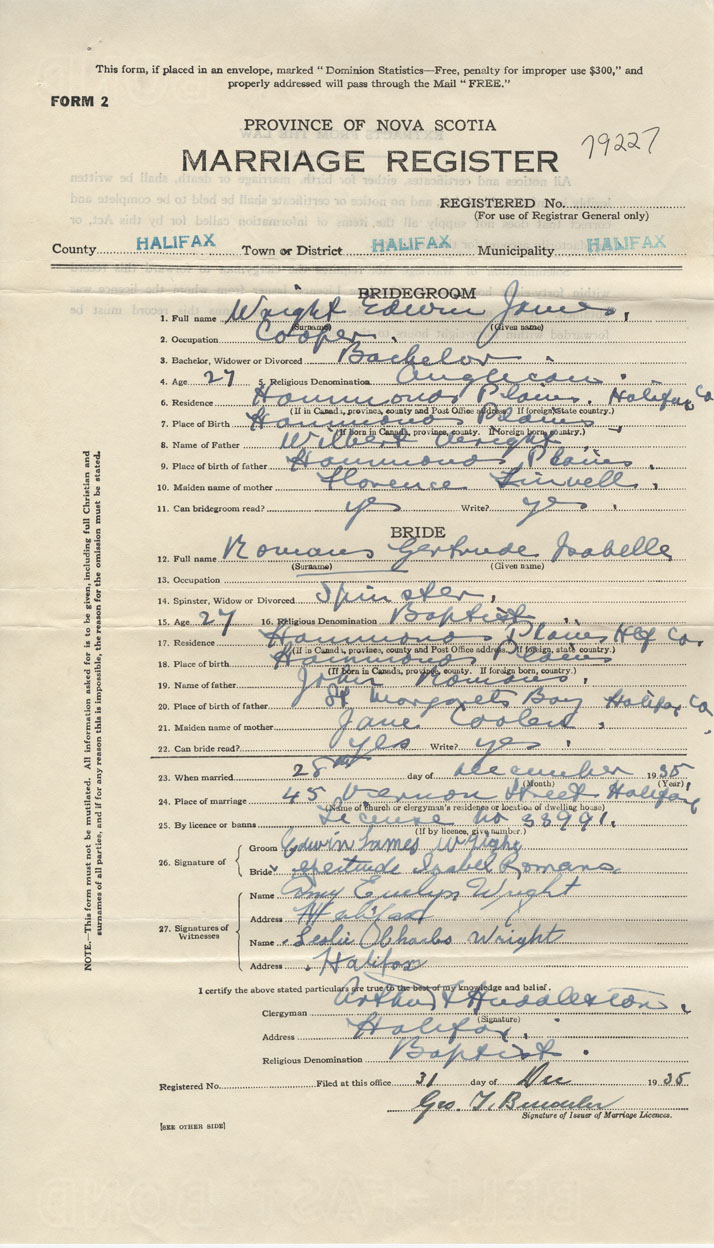 This form, if placed in an envelope, marked "Dominion Statistics—Free, penalty for improper use $300," and
properly addressed will pass through the Mail "FREE."
FORM 2
PROVINCE OF NOVA SCOTIA
79227
MARRIAGE REGISTER
REGISTERED No.
(For use of Registrar General only)
County HALIFAX Town or District HALIFAX Municipality HALIFAX
BRIDEGROOM
1. Full name Wright Edwin James,
(Surname) (Given name)
2. Occupation Cooper.
3. Bachelor, Widower or Divorced Bachelor.
4. Age 27 5. Religious Denomination Anglican.
6. Residence Hammonds Plains, Halifax Co
(If in Canada, province, county and Post Office address. If foreign, state country.)
7. Place of Birth Hammonds Plains
(If born in Canada, province, county. If foreign born, country.)
8. Name of Father Wilbert Wright
9. Place of birth of father Hammonds Plains
10. Maiden name of mother Florence
11. Can bridegroom read? yes Write? yes.
BRIDE
12. Full name Romans Gertrude Isabelle
(Surname) (Given name)
13. Occupation
14. Spinster, Widow or Divorced Spinster,
15. Age 27 16. Religious Denomination Baptist.
17. Residence Hammonds Plains Hfx Co.
(If in Canada, province, county and Post Office address. If foreign, state country.)
18. Place of birth Hammonds Plains
(If born in Canada, province, county. If foreign born, country.)
19. Name of father John Romans,
20. Place of birth of father St Margarets Bay Halifax Co,
21. Maiden name of mother Jane Coolen,
22. Can bride read? yes Write? yes.
23. When married 28th day of December 1935
(Month) (Year)
24. Place of marriage 45 Vernon Street Halifax
(Name of church or clergyman's residence or location of dwelling house)
25. By licence or banns License no 33991.
(If by licence, give number.)
26. Signature of
Groom Edwin James Wright
Bride Gertrude Isabel Romans
27. Signatures of Witnesses
Name Amy Evelyn Wright
Address Halifax
Name Leslie Charles Wright
Address Halifax
I certify the above stated particulars are true to the best of my knowledge and belief.
Clergyman Arthur Huddleston.
(Signature)
Address Halifax.
Religious Denomination Baptist.
Registered No. Filed at this office 31 day of Dec 1935
Geo.
Signature of Issuer of Marriage Licences.
[SEE OTHER SIDE]
NOTE.—This form must not be mutilated. All information asked for is to be given, including full Christian and
surnames of all parties, and if for any reason this is impossible, the reason for the omission must be stated.